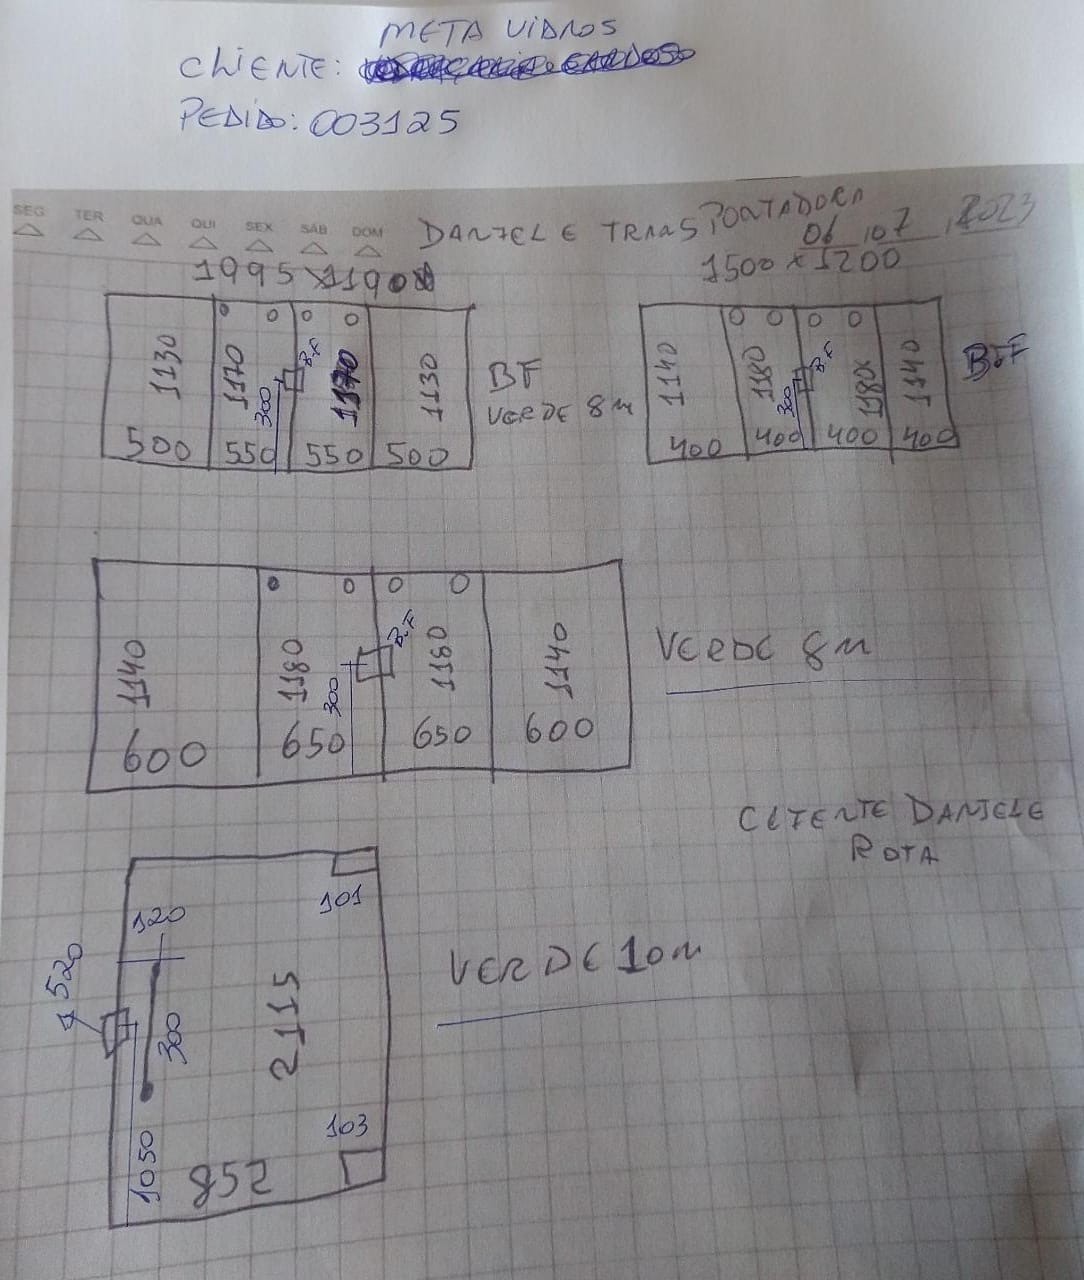 META VIDROS
CLIENTE:
PEDIDO: 003125
SEG TER QUA QUI SEX SÁB DOM
DANIELE TRANSPORTADORA
06 07 2023
1995 x 1190
1500 x 1200
1130 1170 300 B.F 1170 1130
500 550 550 500
BF
VERDE 8M
1140 1180 300 B.F 1180 1140
400 400 400 400
BF
1140 1180 300 B.F 1180 1140
600 650 650 600
VERDE 8M
CLIENTE DANIELE
ROTA
101
120
1520
300
2115
VERDE 10M
103
1050
852